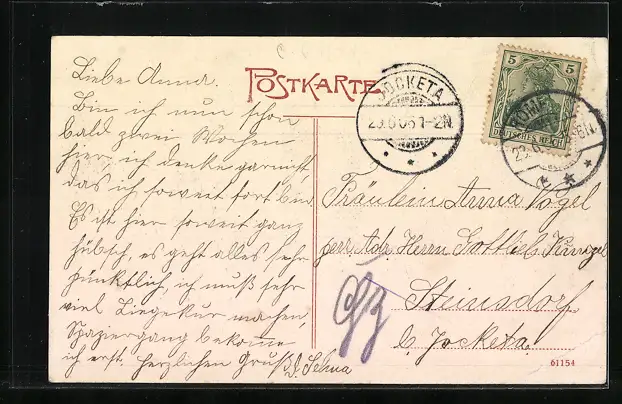 Liebe Anna.
Bin ich nun schon
bald zwei Wochen
hier, ich denke garnicht
das ich soweit fort bin.
Es ist hier soweit ganz
hübsch, es geht alles sehr
pünktlich, ich muß sehr
viel Liegekur machen,
Spaziergang bekomme
ich erst. Herzlichen Gruß
POSTKARTE
JOCKETA
29.6.06 1-2N.
5 5
DEUTSCHES REICH
Fräulein Anna Vogel
per. Adr. Herrn Gottlieb
Steinsdorf
b. Jocketa.
61154